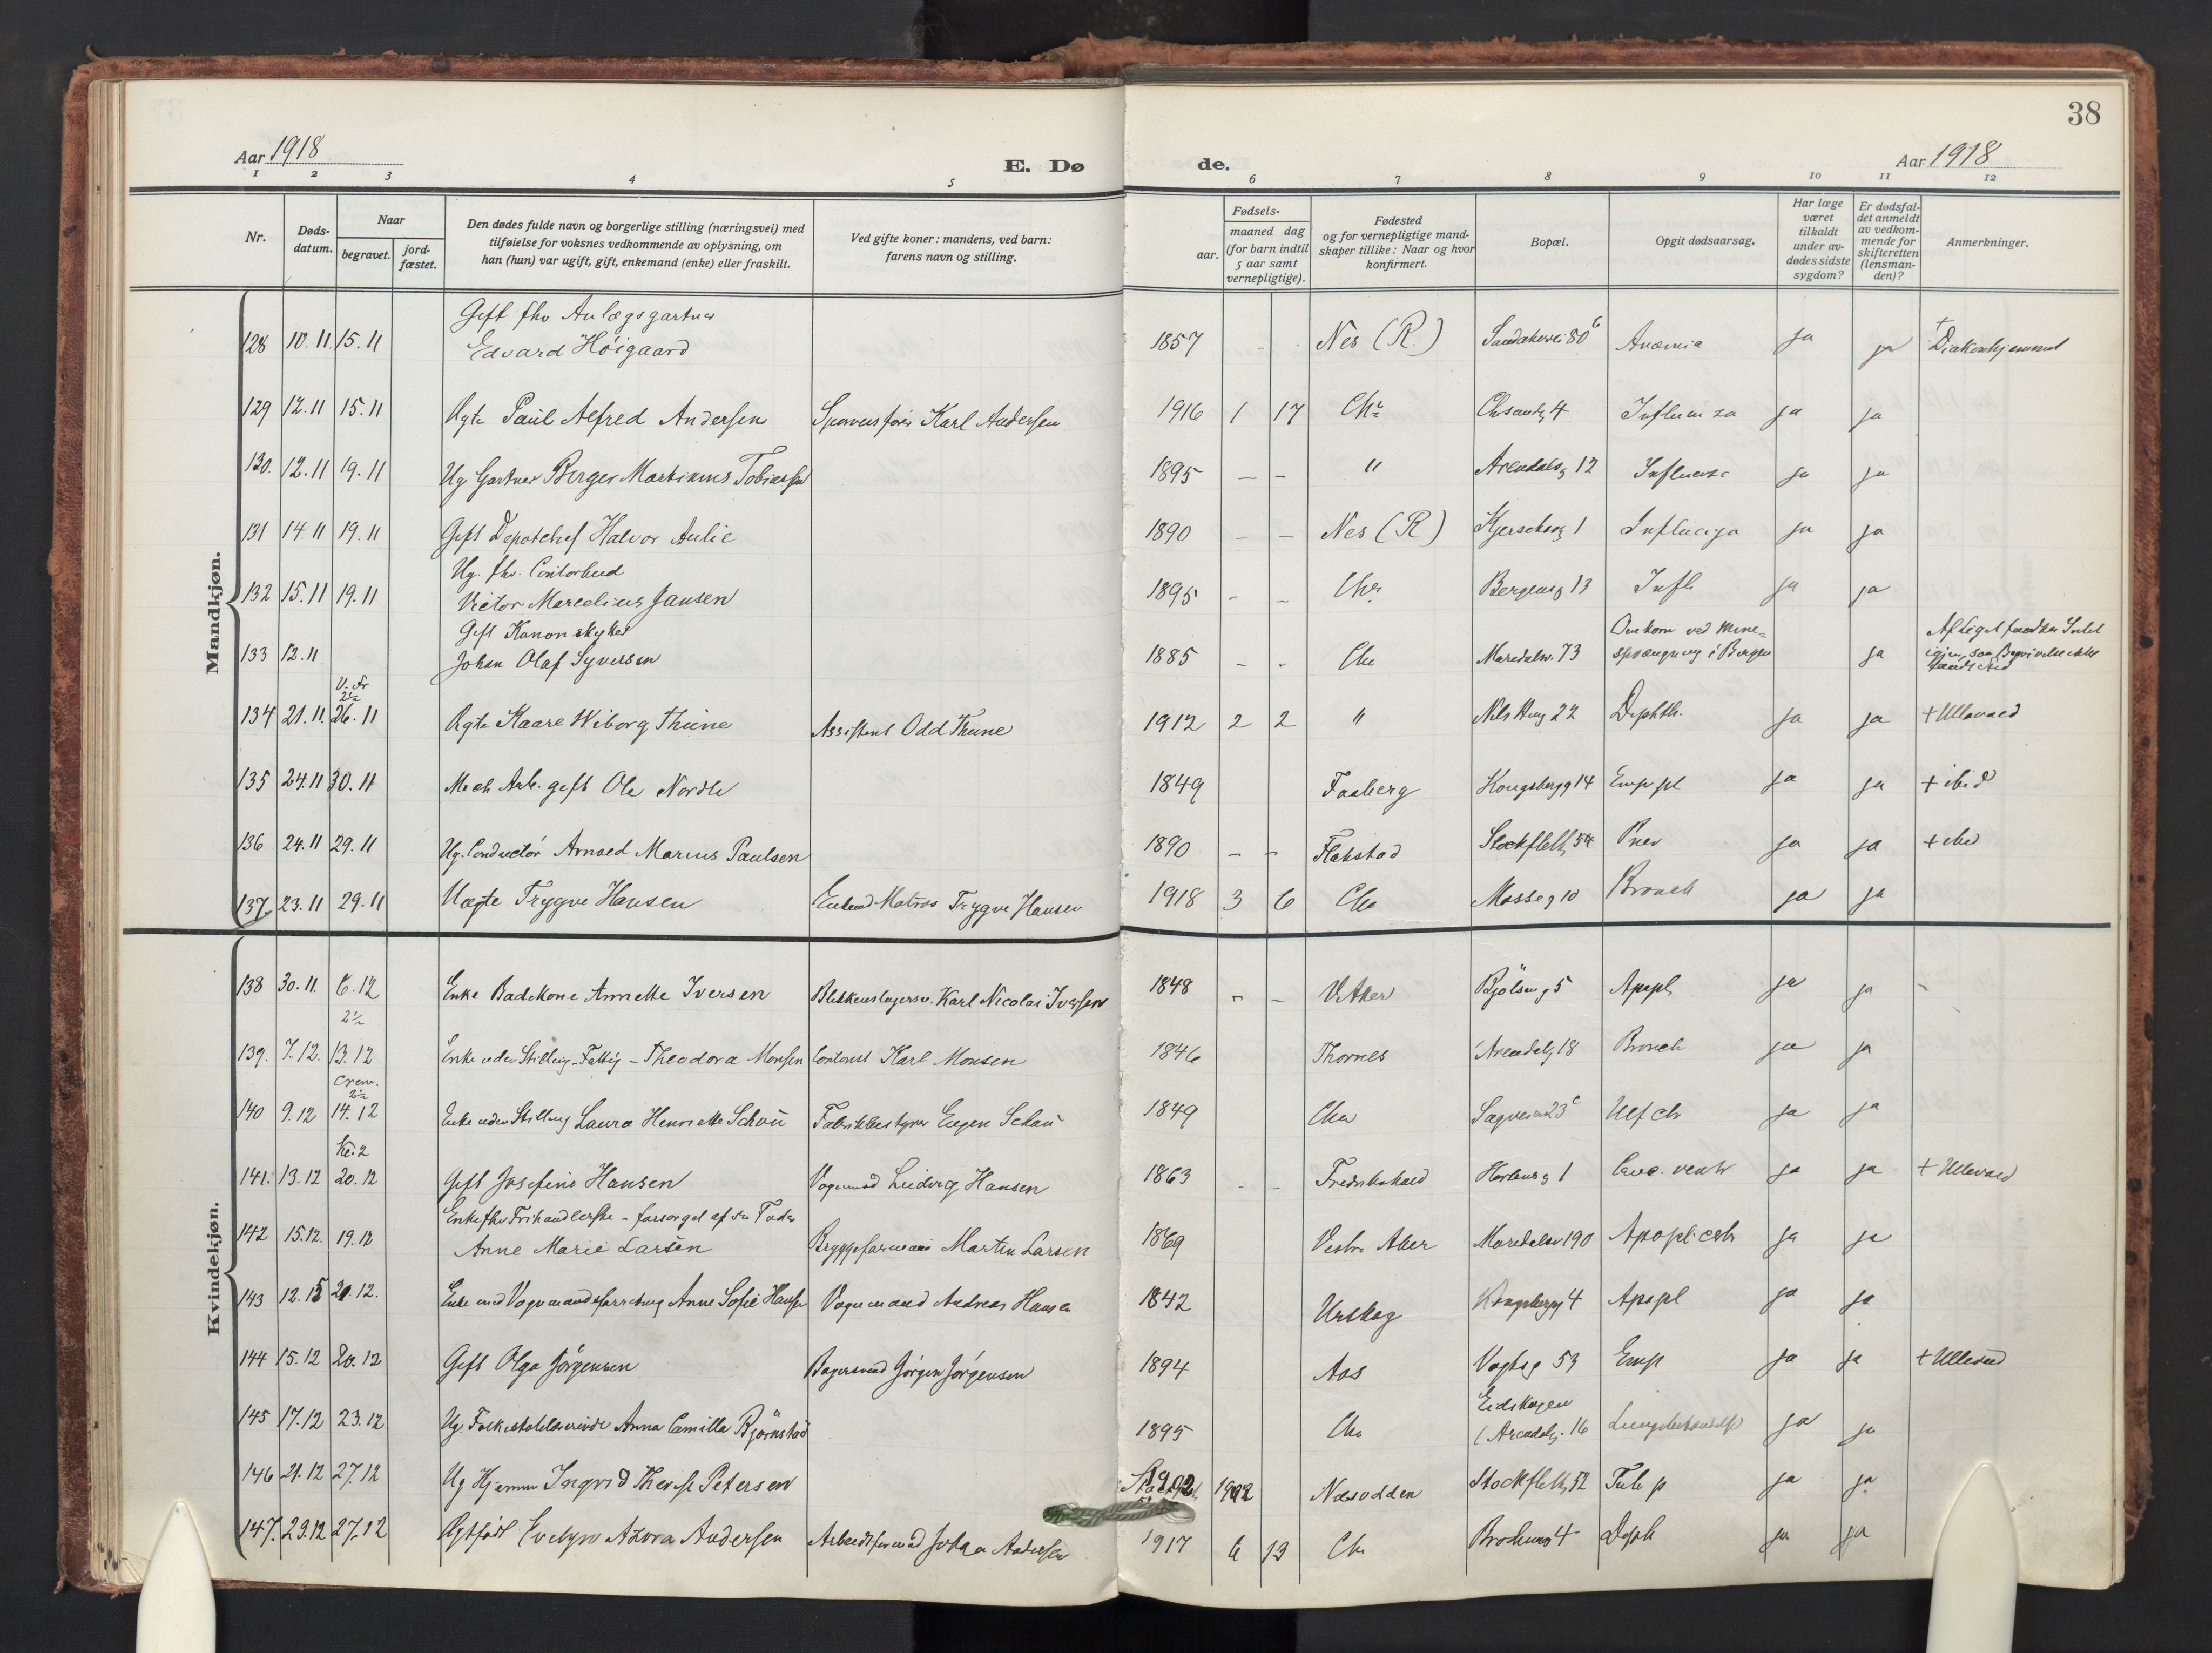 38
Aar 1918
E. Dø de.
Aar 1918
1 2 3 4 5 6 7 8 9 10 11 12
Nr.
Døds-
datum.
Naar
begravet.
jord-
fæstet.
Den dødes fulde navn og borgerlige stilling (næringsvei) med
tilføielse for voksnes vedkommende av oplysning, om
han (hun) var ugift, gift, enkemand (enke) eller fraskilt.
Ved gifte koner: mandens, ved barn:
farens navn og stilling.
Fødsels-
aar.
maaned dag
(for barn indtil
5 aar samt
vernepligtige).
Fødested
og for vernepligtige mand-
skaper tillike: Naar og hvor
konfirmert.
Bopæl.
Opgit dødsaarsag.
Har læge
været
tilkaldt
under av-
dødes sidste
sygdom?
Er dødsfal-
det anmeldt
av vedkom-
mende for
skifteretten
(lensman-
den)?
Anmerkninger.
Mandkjøn.
Gift fhv Anlægsgartner
128 10.11 15.11 Edvard Høigaard 1857 - - Nes (R.) Sandakerv 80 Anæmia ja ja + Diakonhjemmet
129 12.11 15.11 Ægte Paul Alfred Andersen Sporveisfører Karl Andersen 1916 1 17 Chr 4 Influenza ja ja
130. 12.11 19.11 Ug Gartner Birger Martinius Tobiassen 1895 - - " Arendalsg 12 Influenza ja ja
131 14.11 19.11 Gift Depotchef Halvor Aulie 1890 - - Nes (R) 1 Influenza ja ja
Ug. fhv. Contorbud
132 15.11 19.11 Victor Marcelius Jansen 1895 - - Chr. Bergensg 13 Infl ja ja
Gift Kanonskytter
133 12.11 Johan Olaf Syversen 1885 - - Chr Maridalsv. 73 Omkom ved mine=
sprængning i Bergen ja Af Liget fandtes Intet
igjen, saa Begravelse ikke
fandt Sted
V. Kr
2½
134 21.11. 26.11 Ægte Kaare Wiborg Thune Assistent Odd Thune 1912 2 2 " 22 Diphth. ja ja + Ullevaal
135 24.11 30.11 Mech Arb. gift Ole Nordli 1849 Faaberg Kongsbergg 14 ja ja + ibid
136 24.11 29.11 Ug. Conductør Arnold Marius Paulsen 1890 - - Flakstad Stockflethg 54 Pnev ja ja + ibid
137 23.11 29.11 Uægte Trygve Hansen Matros Trygve Hansen 1918 3 6 Chr Mosseg 10 Bronch ja ja
Kvindekjøn.
138 30.11. 6.12 Enke Badekone Annette Iversen Blikkenslagersv. Karl Nicolai Iversen 1848 - - V. Aker Bjølseng 5 Apopl. ja ja -
2½
139. 7.12. 13.12 Enke uden Stilling - Fattig - Theodora Monsen Contorist Karl Monsen 1846 Thornes Arendalsg 18 Bronch ja ja
Crem.
2½
140 9.12 14.12 Enke uden Stilling Laura Henriette Schou Fabrikbestyrer Eugen Schou 1849 Chr Sagveien 23 Ulf ch ja ja
Kl. 2
141. 13.12 20.12 Gift Josefine Hansen Vognmand Ludvig Hansen 1863 - - Fredrikshald 1 Canc. ventr ja ja + Ullevaal
Enke fhv Frihandlerske - forsørget af sin
142 15.12. 19.12 Anne Marie Larsen Bryggeformand Martin Larsen 1869 Vestre Aker Maridalsv 190 Apopl. cerebr ja ja
143 12.15 20.12. Enke med Vognmandsforretning Anne Sofie Hansen Vognmand Andreas Hansen 1842 Urskog Kongsbergg 4 Apopl ja ja
144 15.12 20.12 Gift Olga Jørgensen Bagersvend Jørgen Jørgensen 1894 Aas Vogtsg 53 Emp ja ja + Ullevaal
Eidskogen
145 17.12 23.12 Ug. Anna Camilla Bjørnstad 1895 Chr (Arendalsg. 16 ja ja
146 21.12 27.12 Ug Hjemme Ingrid Therese Petersen 1902 1902 Nesodden Stockflethg 52 Tub p ja ja
147. 23.12 27.12 Ægtefødt Evelyn Azora Andersen Arbeidsformand Johan Andersen 1917 6 13 Chr 4 Diph ja ja